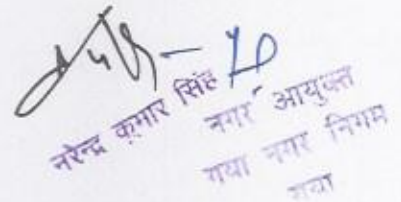 नरेन्द्र कुमार सिंह
नगर आयुक्त
गया नगर निगम
गया